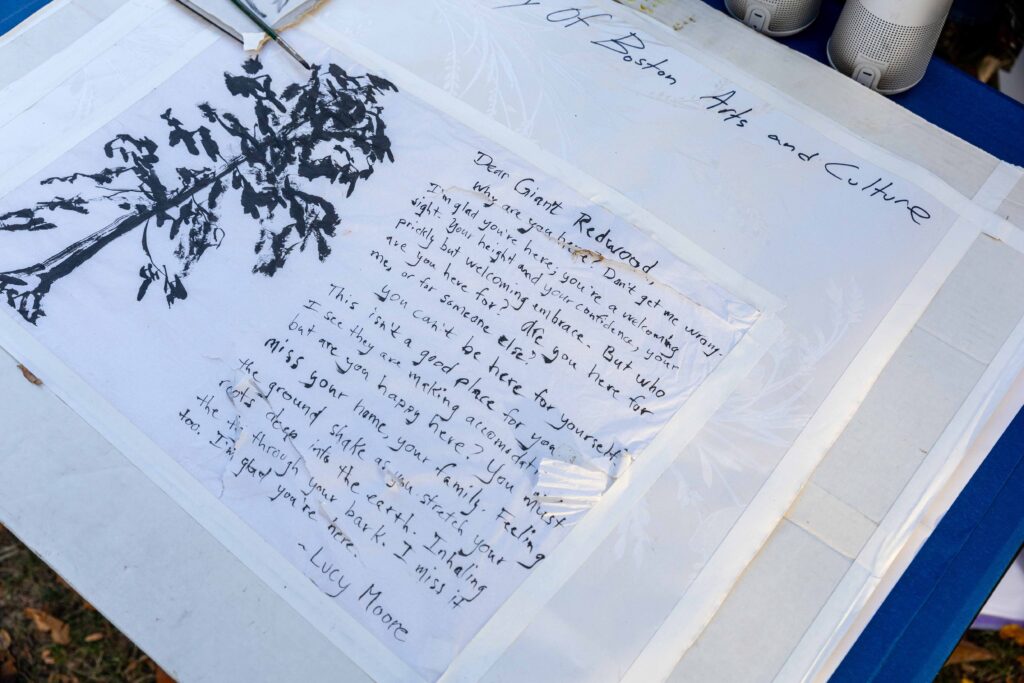 y Of Boston Arts and Culture
Dear Giant Redwood,
Why are you here? Don't get me wrong.
I'm glad you're here; you're a welcoming
sight. Your height and your confidence, your
prickly but welcoming embrace. But who
are you here for? Are you here for
me, or for someone else?
you can't be here for yourself;
This isn't a good place for you
I see they are making accomodati
but are you happy here? You must
miss your home, your family. Feeling
the ground shake as you stretch your
roots deep into the earth. Inhaling
the through your bark. I miss it
too. I'm glad you're here.
~ Lucy Moore